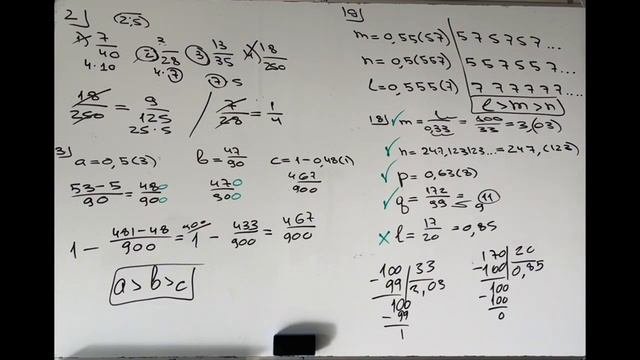 2) (2;5)
1) 7/40 2) 7/28 3) 13/35 4) 18/250
4·10 4·7 7·5
18/250 = 9/125 / 7/28 = 1/4
25·5
3) a=0,5(3) b=47/90 c=1-0,48(1)
53-5/90 = 480/900 470/900 467/900
1 - 481-48/900 = 900 1 - 433/900 = 467/900
a>b>c
19)
m=0,55(57) 575757...
n=0,5(557) 557557...
l=0,555(7) 777777....
l>m>n
18) ✓ m = 1/0,33 = 100/33 = 3,(03)
✓ n=247,123123...=247,(123)
✓ p=0,63(8)
✓ q=172/99 = 9 11
x l = 17/20 = 0,85
100 33
-99 3,03
100
-99
1
170 20
-100 0,85
100
-100
0